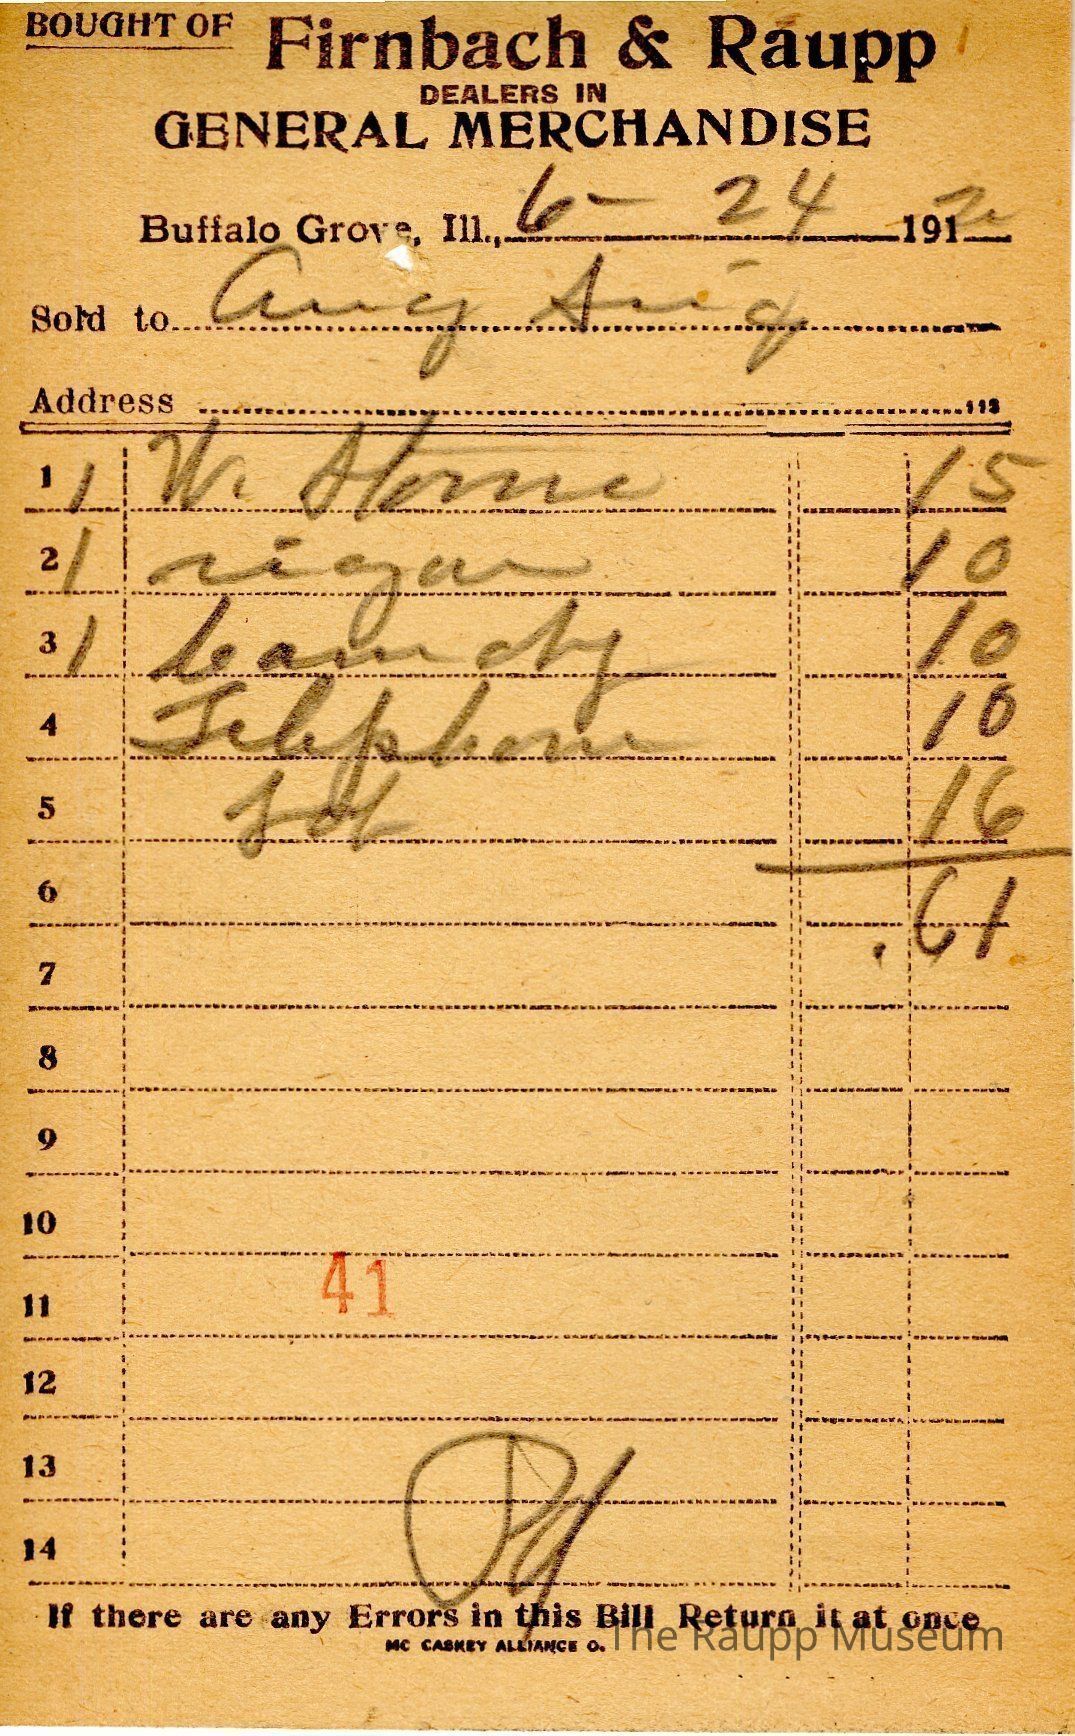 BOUGHT OF Firnbach & Raupp
DEALERS IN
GENERAL MERCHANDISE
Buffalo Grove, Ill., 6- 24 1912
Sold to Aug Sieg
Address 113
1 1 W. Stone 15
2 1 cigar 10
3 1 Candy 10
4 Telephone 10
5 16
6 .61
7
8
9
10
11 41
12
13
14 Pd
If there are any Errors in this Bill Return it at once
MC CASKEY ALLIANCE O.
The Raupp Museum